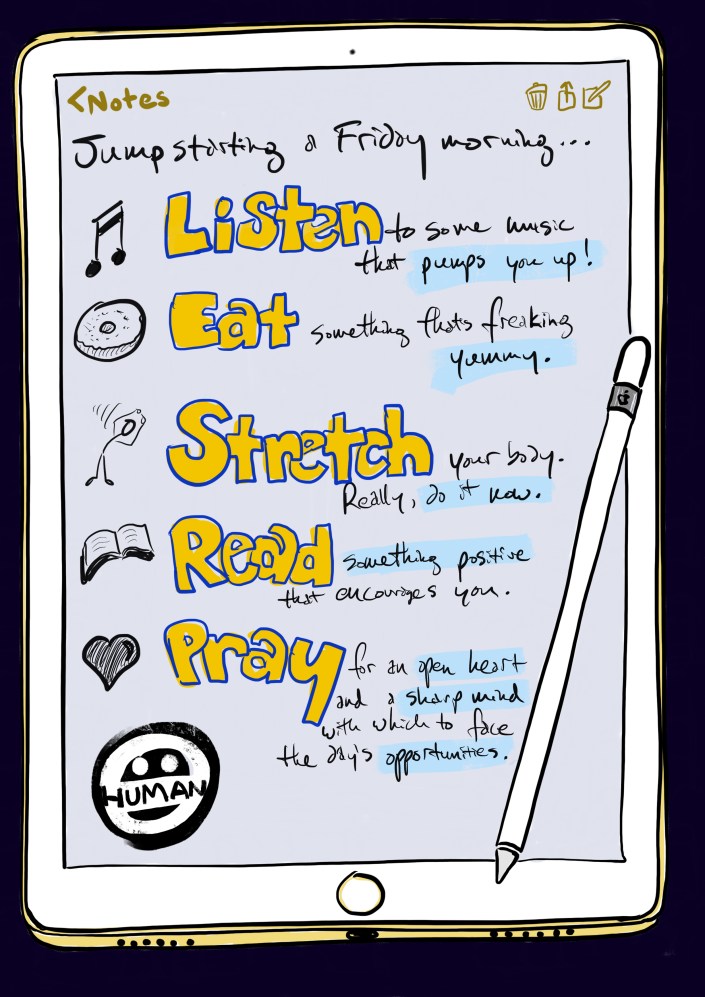 <Notes
Jumpstarting a Friday morning...
Listen to some music
that pumps you up!
Eat something thats freaking
yummy.
Stretch your body.
Really, do it now.
Read something positive
that encourages you.
Pray for an open heart
and a sharp mind
with which to face
the day's opportunities.
HUMAN